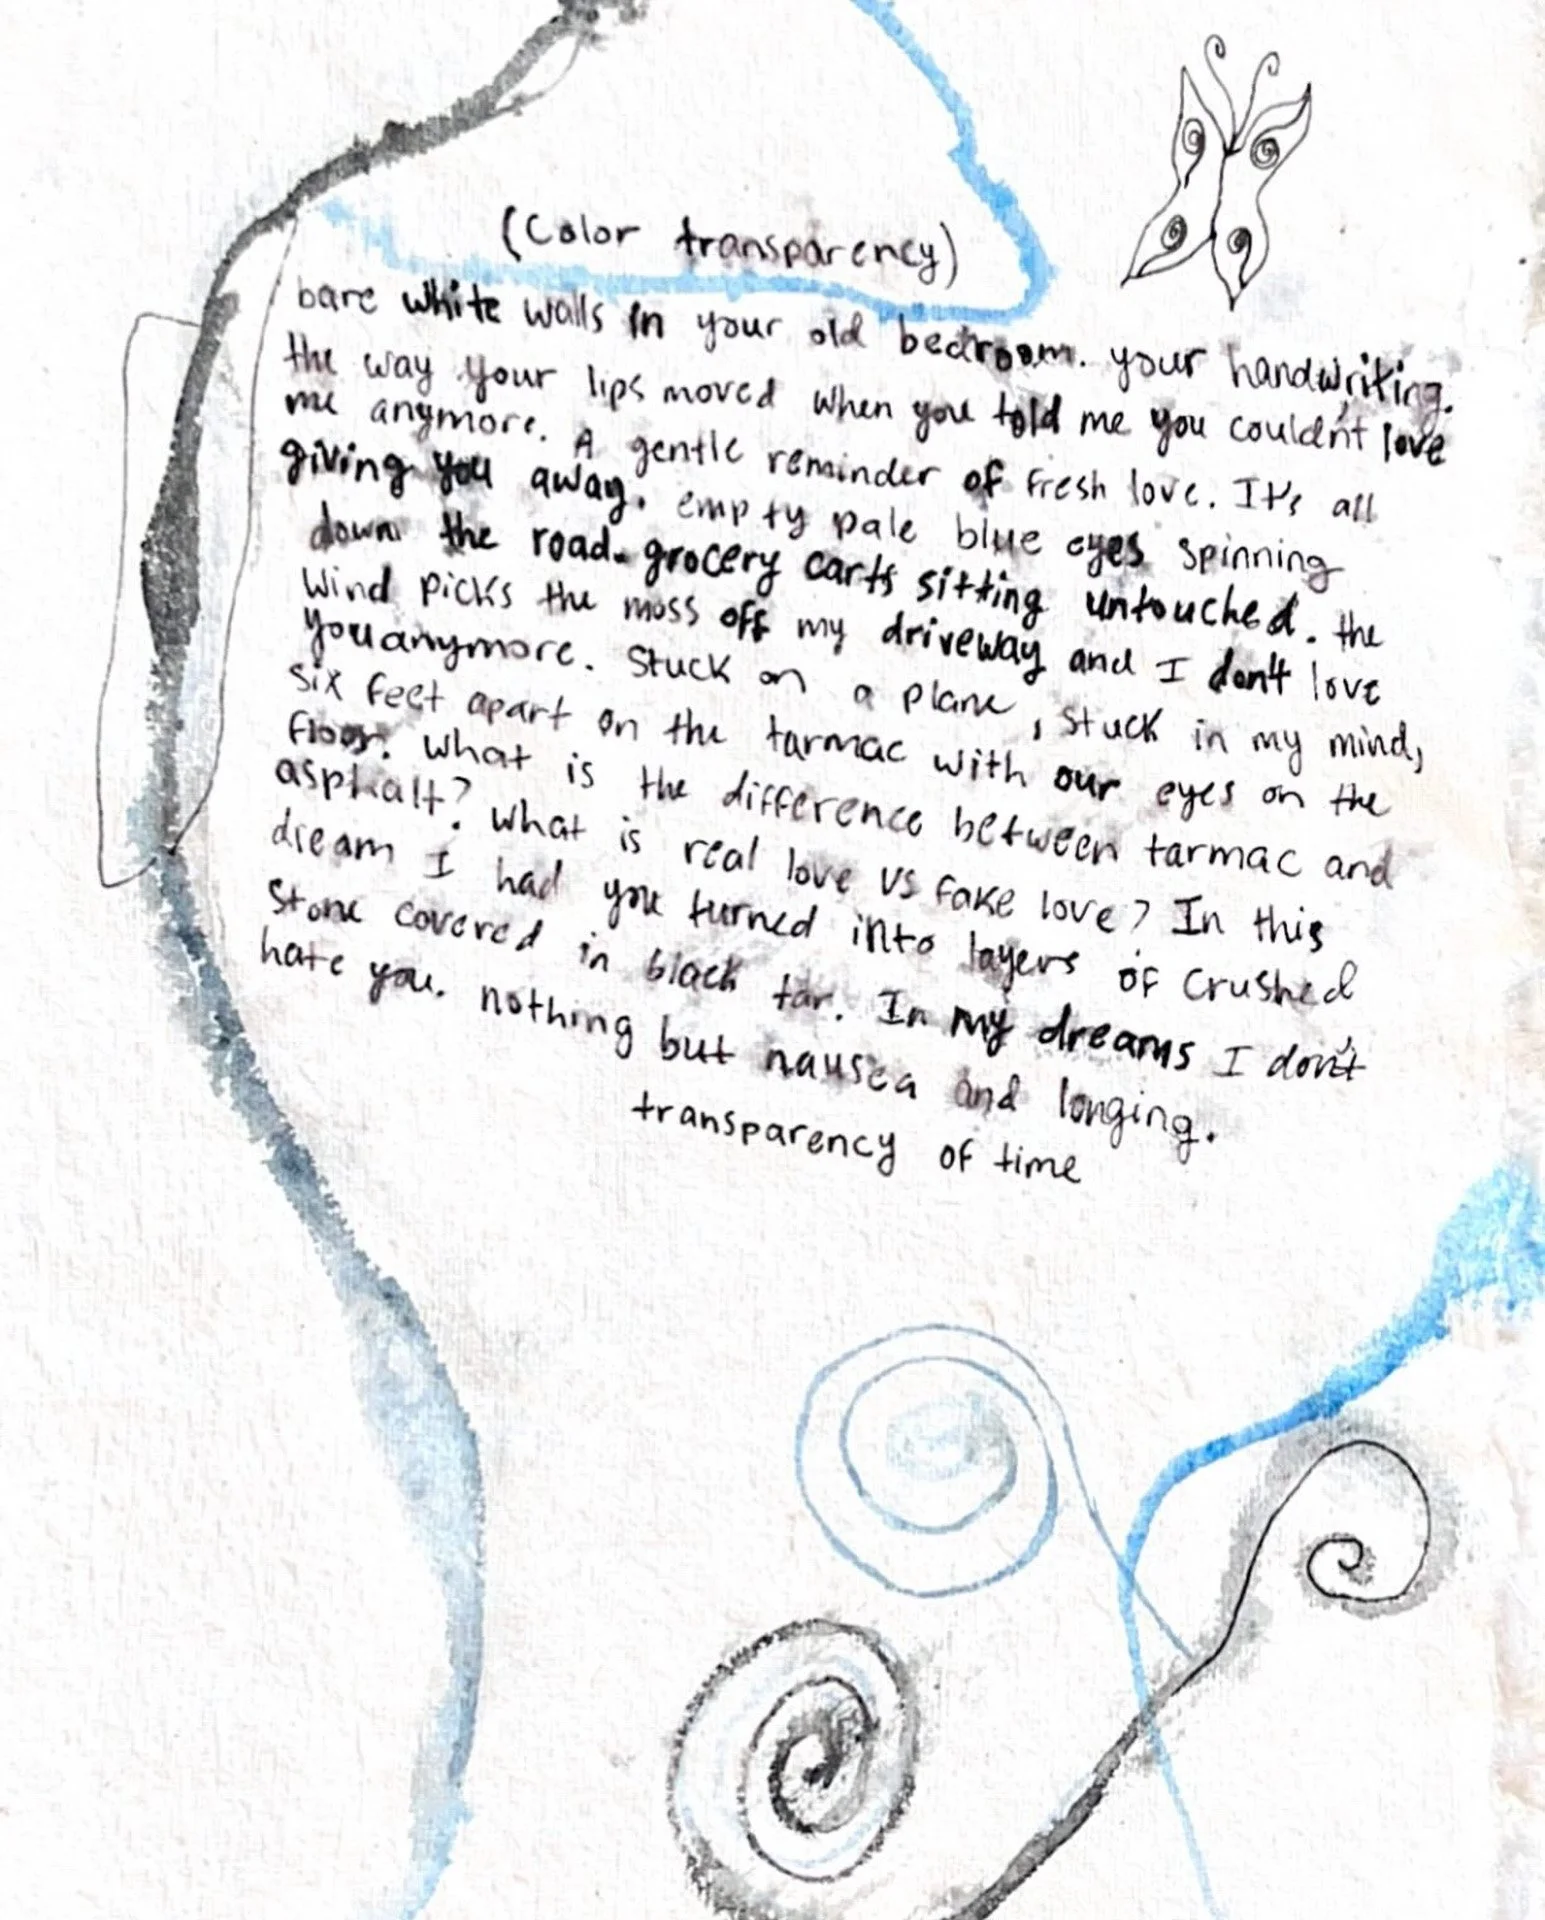 (Color transparency)
bare white walls in your old bedroom. your handwriting.
the way your lips moved when you told me you couldn't love
me anymore. A gentle reminder of fresh love. It's all
giving you away. empty pale blue eyes spinning
down the road. grocery carts sitting untouched. the
wind picks the moss off my driveway and I don't love
you anymore. Stuck on a plane, stuck in my mind,
six feet apart on the tarmac with our eyes on the
floor. what is the difference between tarmac and
asphalt? what is real love vs fake love? In this
dream I had you turned into layers of crushed
stone covered in black tar. In my dreams I don't
hate you. nothing but nausea and longing.
transparency of time